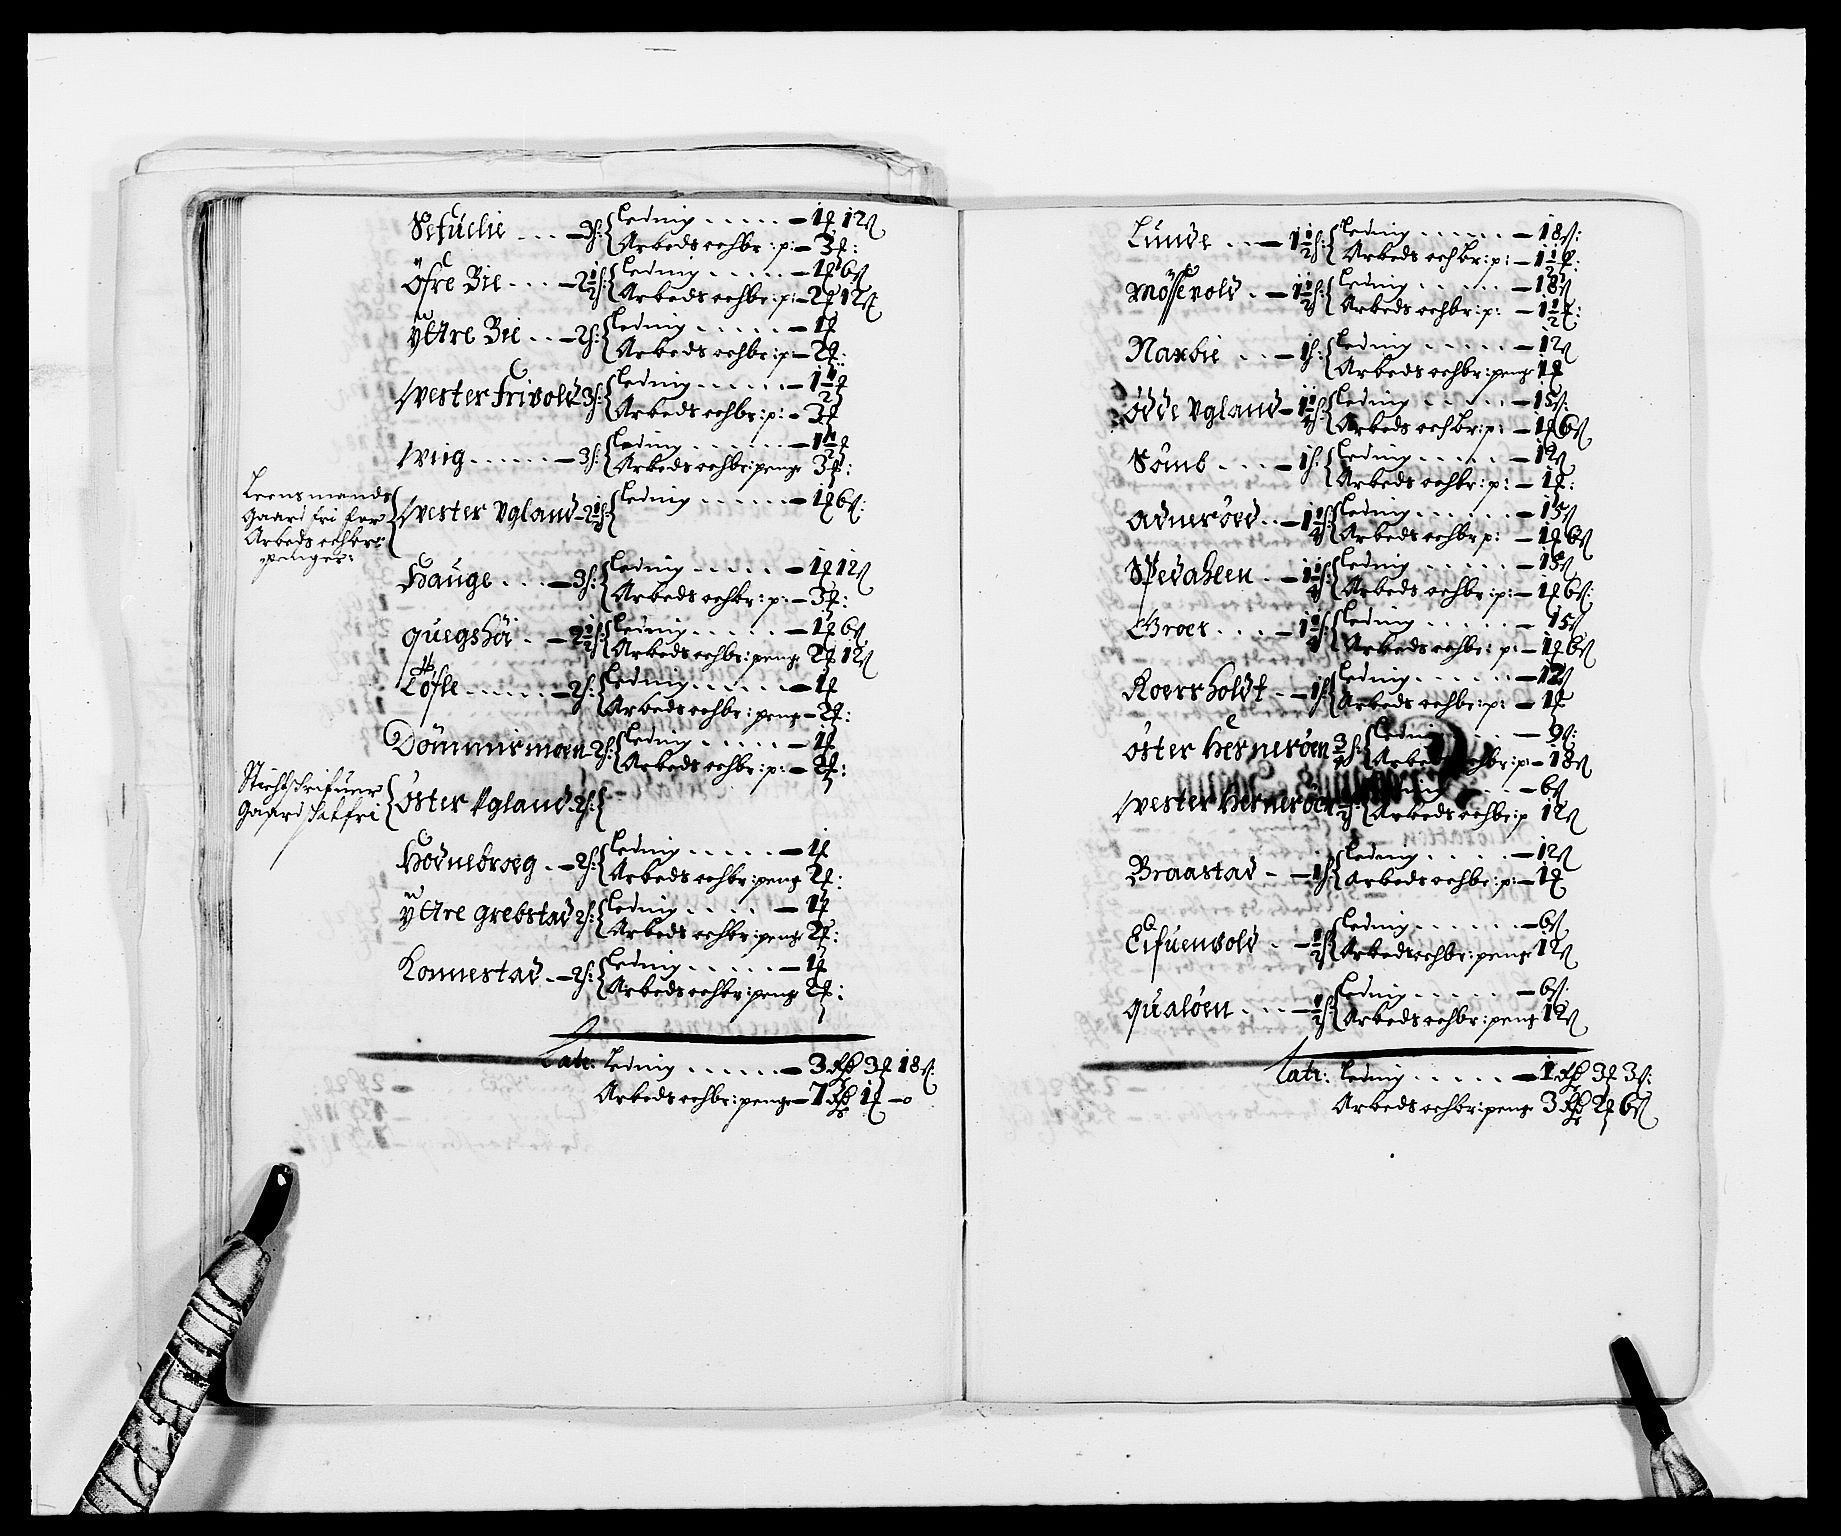 Sefuelie . . . – 3 h: { Leding . . . . . – 1 ƒ 12 ß
Arbeds och br: p: – 3 ƒ:
Öfre Bie . . . – 2 1/2 h: { Leding . . . . . – 1 ƒ 6 ß
Arbeds och br: p: – 2 ƒ 12 ß
Ÿttre Bie . . – 2 h: { Leding . . . . – 1 ƒ
Arbeds och br: p – 2 ƒ:
Wester frivold 3 h: { Leding . . . . . – 1 1/2 ƒ
Arbeds och br: p: – 3 ƒ
Wiig . . . . . . – 3 h: { Leding . . . . . . – 1 1/2 ƒ
Arbeds och br: penge 3 ƒ:
Leensmands
Gaard fri for
Arbeds och br:
penger:
Wester Vgland – 2 1/2 h: { Leding . . . . . . – 1 ƒ 6 ß:
Hauge . . . – 3 h: { Leding . . . . . – 1 ƒ 12 ß
Arbeds och br: p: – 3 ƒ:
quegshöi . . – 2 1/2 h: { Leding . . . . . – 1 ƒ 6 ß
Arbeds och br: penge 2 ƒ 12 ß
Löfle . . . . . – 2 h: { Leding . . . . . . – 1 ƒ
Arbeds och br: peng – 2 ƒ:
Dömmismoen 2 h: { Leding . . . . . – 1 ƒ
Arbeds och br: p: – 2 ƒ:
Stichtschrifuer
Gaard schatfri
öster Vgland – 2 h: {
Hodnebroeg . . – 2 h: { Leding . . . . . – 1 ƒ
Arbeds och br: peng 2 ƒ:
Ÿttre grebstad 2 h: { Leding . . . . – 1 ƒ
Arbeds och br: penge 2 ƒ:
Konnestad . . – 2 h: { Leding . . . . . – 1 ƒ
Arbeds och br: peng 2 ƒ:
Late: Leding . . . . . . – 3 Rd 3 ƒ 18 ß:
Arbeds och br: penge – 7 Rd 1 ƒ –o
Lunde . . – 1 1/2 h: { Leding . . . . . . – 18 ß:
Arbeds och br: p: – 1 1/2 ƒ:
Mössevold . – 1 1/2 h: { Leding . . . . . – 18 ß
Arbeds och br: p: – 1 1/2 ƒ:
Narbie . . – 1 h: { Leding . . . . . – 12 ß
Arbeds och br: peng 1 ƒ
ödde Vgland – 1 1/4 h: { Leding . . . . . – 15 ß:
Arbeds och br: p: – 1 ƒ 6 ß
Sömb . . . – 1 h: { Leding . . . . . – 12 ß
Arbeds och br: p: – 1 ƒ:
Adneröed . . – 1 1/4 h: { Leding . . . . . . – 15 ß
Arbeds och br: p: – 1 ƒ 6 ß
Spedaleen . – 1 1/4 h: { Leding . . . . . – 15 ß
Arbeds och br: p: – 1 ƒ 6 ß:
Groes . . . . – 1 1/4 h: { Leding . . . . . – 15 ß
Arbeds och br: p: – 1 ƒ 6 ß
Roersholdt – – 1 h: { Leding . . . . . . – 12 ß
Arbeds och br: p: – 1 ƒ
öster Herneröen 3/4 h: { Leding . . – 9 ß:
Arbeds och br: p: – 18 ß
Wester Herneröen 1/2 h: { Leding . . . – 6 ß
Arbeds och br: p 12 ß
Braastad – – 1 h: { Leding . . . . – 12 ß
Arbeds och br: p: – 1 ƒ
Eifuenvold . – 1/2 h: { Leding . . . . . . – 6 ß
Arbeds och br: peng 12 ß
qualöen . . . – 1/2 h: { Leding . . . . . – 6 ß:
Arbeds och br: peng 12 ß
Late: Leding . . . . . – 1 Rd 3 ƒ 3 ß:
Arbeds och br: peng 3 Rd 2 ƒ 6 ß